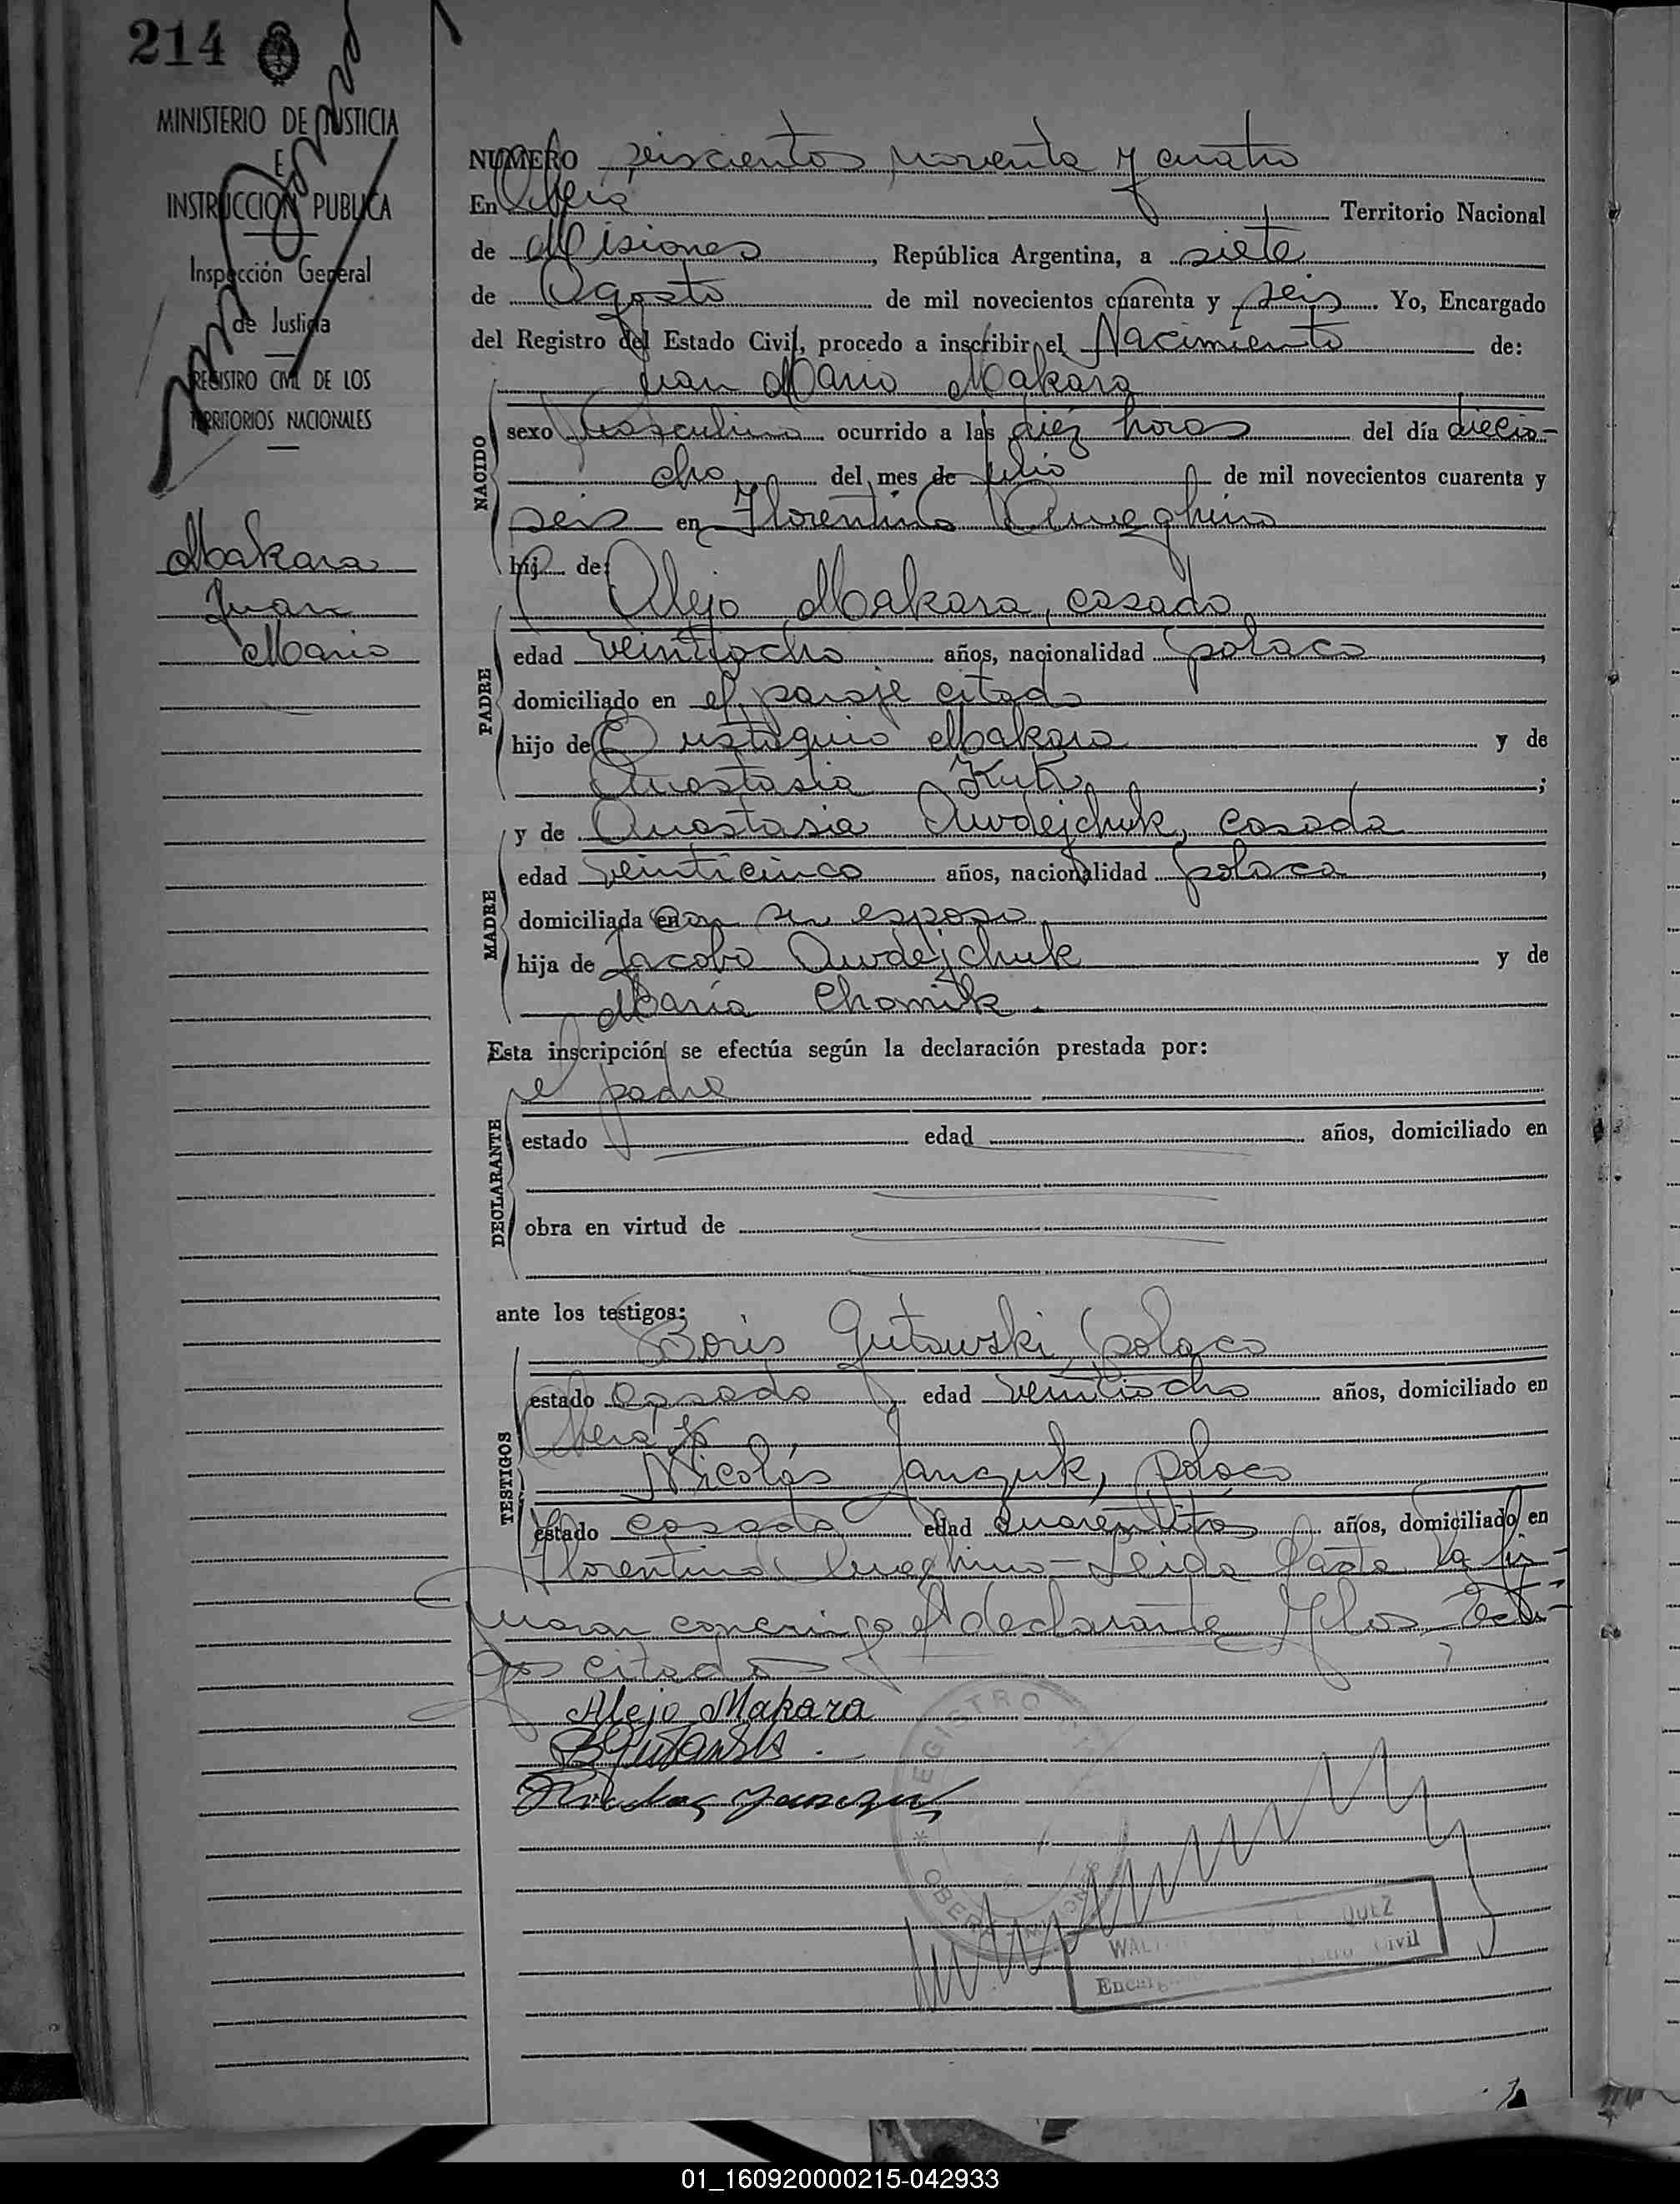 214
MINISTERIO DE JUSTICIA
E
INSTRUCCION PUBLICA
Inspección General
de Justicia
REGISTRO CIVIL DE LOS
TERRITORIOS NACIONALES
Makara
Juan
Mario
NUMERO seiscientos noventa y cuatro
En Oberá Territorio Nacional
de Misiones, República Argentina, a siete
de Agosto de mil novecientos cuarenta y seis. Yo, Encargado
del Registro del Estado Civil, procedo a inscribir el Nacimiento de:
Juan Mario Makara
NACIDO
sexo masculino ocurrido a las diez horas del día diecio-
cho del mes de julio de mil novecientos cuarenta y
seis en Florentino Ameghino
hij de:
Alejo Makara, casado
PADRE
edad veintiocho años, nacionalidad polaco,
domiciliado en el paraje citado
hijo de Eustaquio Makara y de
Anastasia Kutz;
y de Anastasia Awdejchuk, casada
MADRE
edad veinticinco años, nacionalidad polaca,
domiciliada en con su esposo
hija de Jacobo Awdejchuk y de
María Chomik.
Esta inscripción se efectúa según la declaración prestada por:
el padre
DECLARANTE
estado edad años, domiciliado en
obra en virtud de
ante los testigos:
Boris Gutowski, polaco
TESTIGOS
estado casado, edad veintiocho años, domiciliado en
Oberá y
Nicolás Janczuk, polaco
estado casado edad años, domiciliado en
Florentino Ameghino - Leída el acta la fir-
maron conmigo el declarante y los testi-
gos citados
Alejo Makara
BGutowski.
Nicolas Janczuk
REGISTRO
OBERA
WAL QUEZ
Encarg Civil
01_160920000215-042933